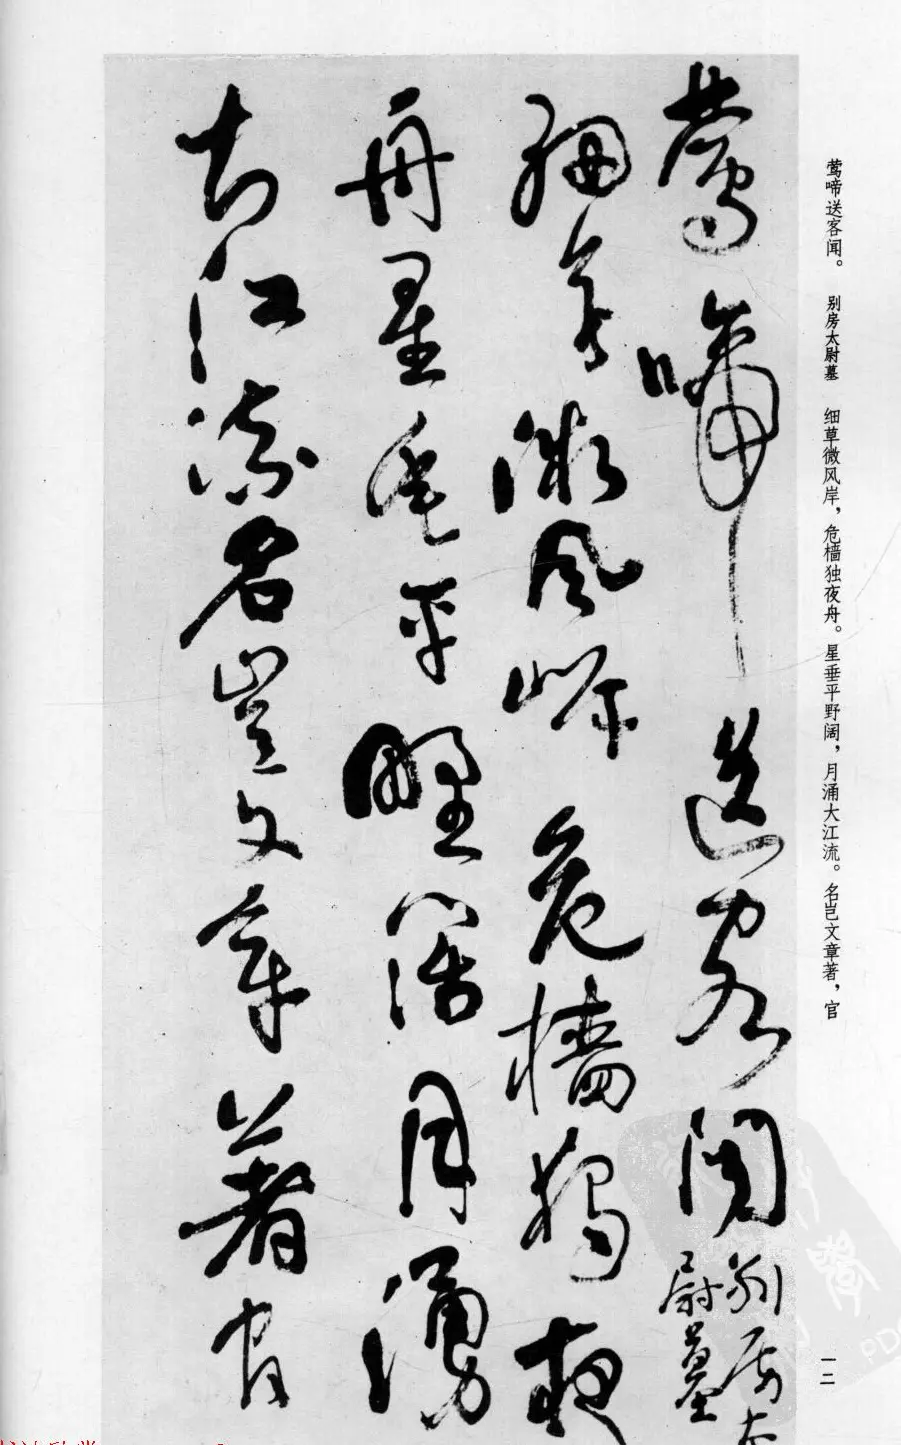 莺啼送客闻。 别房太尉墓 细草微风岸，危樯独夜舟。星垂平野阔，月涌大江流。名岂文章著，官
鶯啼送客聞
别房太
尉墓
細草微風岸危檣獨夜
舟星垂平野闊月湧
大江流名豈文章著官
一二